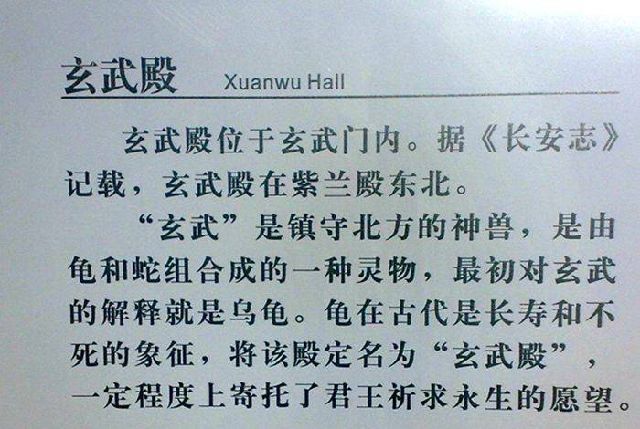 玄武殿 Xuanwu Hall
玄武殿位于玄武门内。据《长安志》
记载，玄武殿在紫兰殿东北。
“玄武”是镇守北方的神兽，是由
龟和蛇组合成的一种灵物，最初对玄武
的解释就是乌龟。龟在古代是长寿和不
死的象征，将该殿定名为“玄武殿”，
一定程度上寄托了君王祈求永生的愿望。